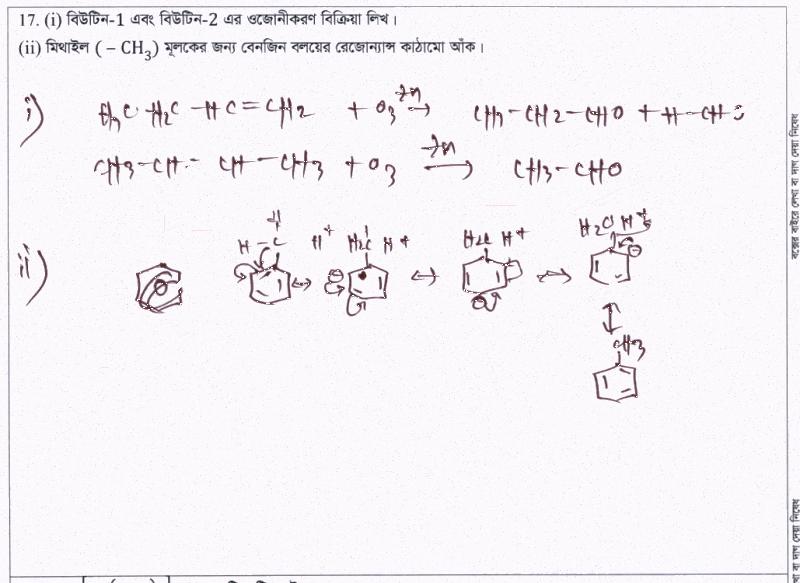 17. (i) বিউটিন-1 এবং বিউটিন-2 এর ওজোনীকরণ বিক্রিয়া লিখ।
(ii) মিথাইল ( – CH₃) মূলকের জন্য বেনজিন বলয়ের রেজোন্যান্স কাঠামো আঁক।
i) H₃C-H₂C-HC=CH₂ + O₃ Zn→ CH₃-CH₂-CHO + H-CHO
CH₃-CH= CH-CH₃ + O₃ Zn→ CH₃-CHO
ii) H-C H⁺ H₂C H⁺ ↔ H₂C H⁺ ↔ H₂C H⁺
CH₃
বক্সের বাইরে লেখা বা দাগ দেয়া নিষেধ
বা দাগ দেয়া নিষেধ